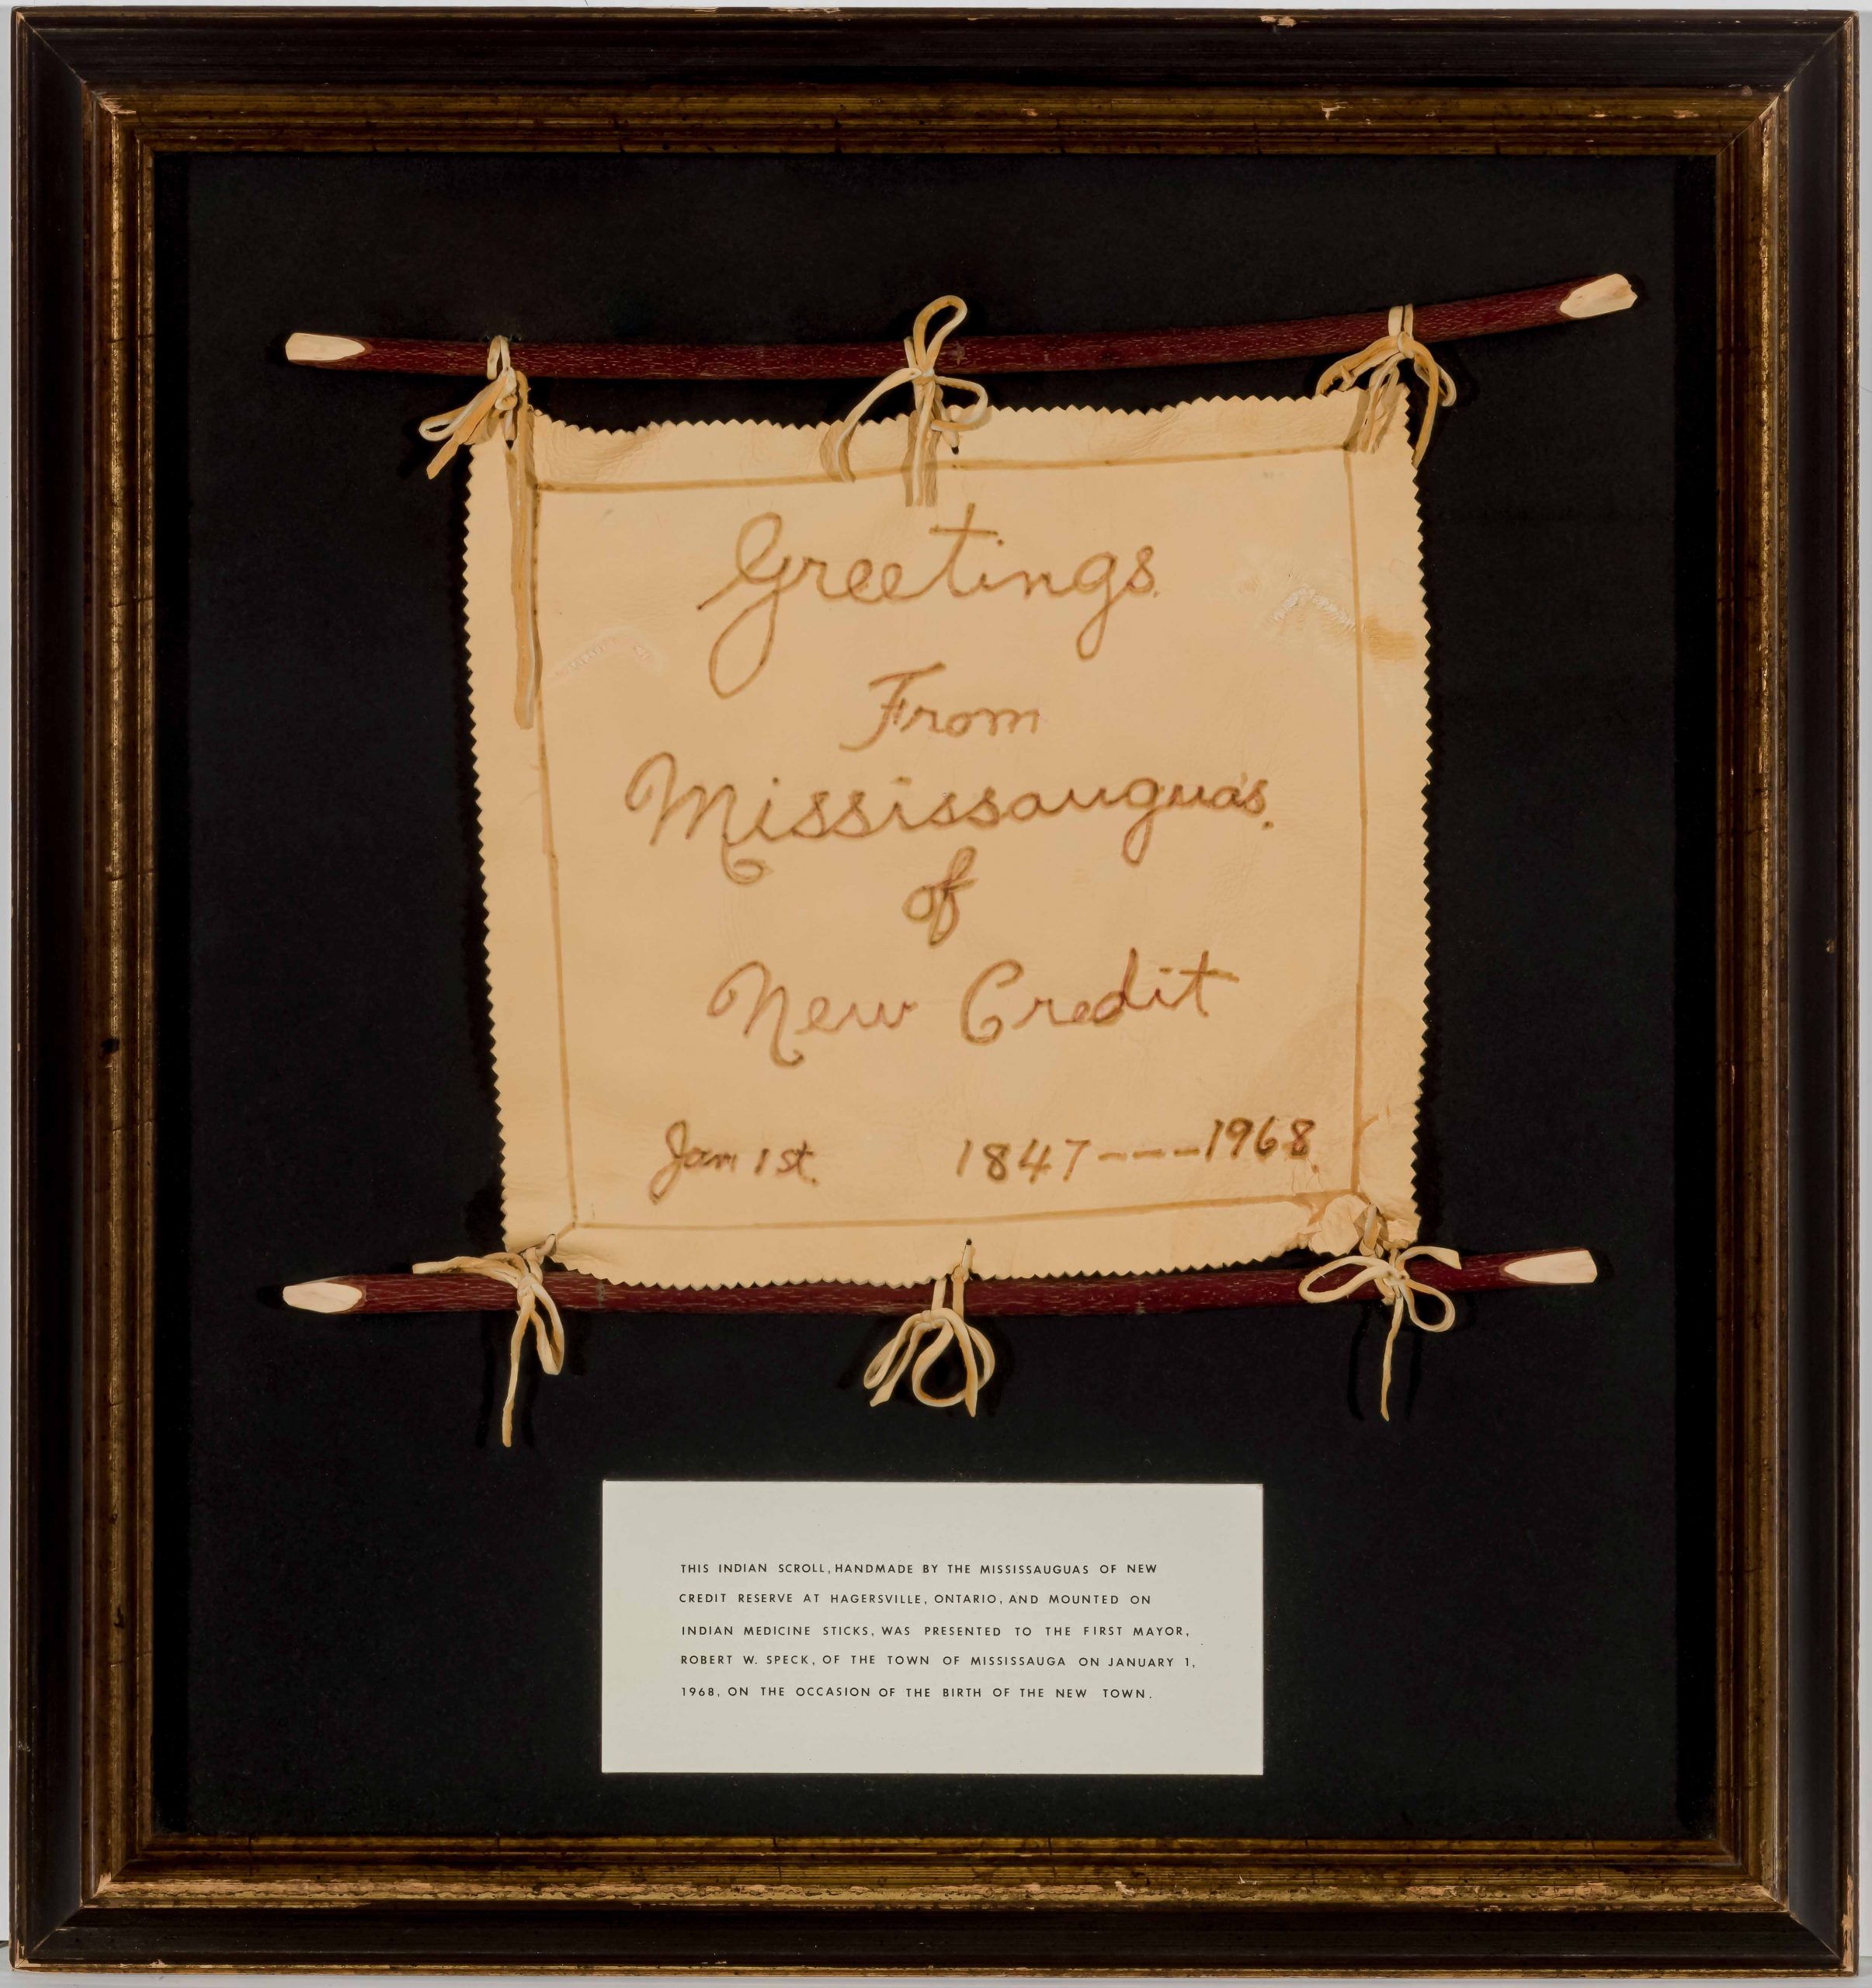 Greetings
From
Mississaugua's.
of
New Credit
Jan 1st. 1847---1968.
THIS INDIAN SCROLL, HANDMADE BY THE MISSISSAUGUAS OF NEW
CREDIT RESERVE AT HAGERSVILLE, ONTARIO, AND MOUNTED ON
INDIAN MEDICINE STICKS, WAS PRESENTED TO THE FIRST MAYOR,
ROBERT W. SPECK, OF THE TOWN OF MISSISSAUGA ON JANUARY 1,
1968, ON THE OCCASION OF THE BIRTH OF THE NEW TOWN.